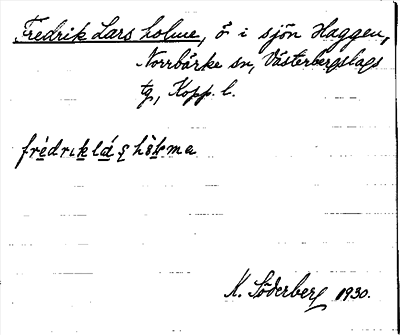 Fredrik Lars holme, ö i sjön Haggen,
Norrbärke sn, Västerbergslags
tg, Kopp. l.
frédrik lá ʂ hòlma
K. Söderberg 1930.